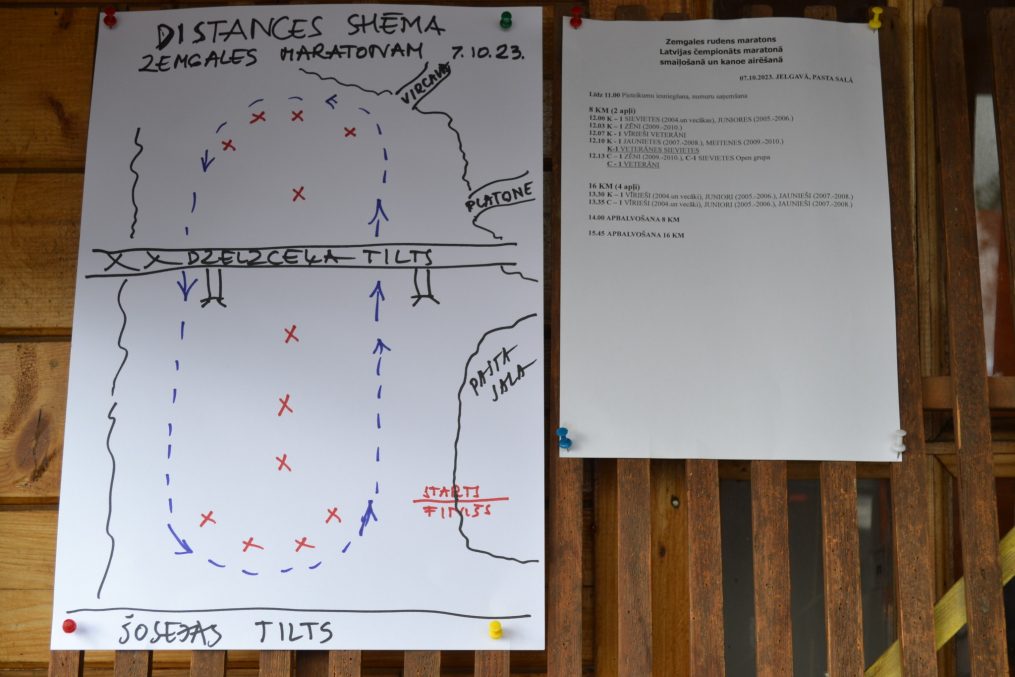 DISTANCES SHĒMA
ZEMGALES MARATONAM 7.10.23.
VIRCAVA
PLATONE
DZELZCEĻA TILTS
PASTA
SALA
STARTS
FINIŠS
ŠOSEJAS TILTS
Zemgales rudens maratons
Latvijas čempionāts maratonā
smaiļošanā un kanoe airēšanā
07.10.2023. JELGAVĀ, PASTA SALĀ
Līdz 11.00 Pieteikumu iesniegšana, numuru saņemšana
8 KM (2 apļi)
12.00 K – 1 SIEVIETES (2004.un vecākas), JUNIORES (2005.-2006.)
12.03 K – 1 ZĒNI (2009.-2010.)
12.07 K - 1 VĪRIEŠI VETERĀNI
12.10 K - 1 JAUNIETES (2007.-2008.), MEITENES (2009.-2010.)
K-1 VETERĀNES SIEVIETES
12.13 C – 1 ZĒNI (2009.-2010.), C-1 SIEVIETES Open grupa
C - 1 VETERĀNI
16 KM (4 apļi)
13.30 K – 1 VĪRIEŠI (2004.un vecāki), JUNIORI (2005.-2006.), JAUNIEŠI (2007.-2008.)
13.35 C – 1 VĪRIEŠI (2004.un vecāki), JUNIORI (2005.-2006.), JAUNIEŠI (2007.-2008.)
14.00 APBALVOŠANA 8 KM
15.45 APBALVOŠANA 16 KM